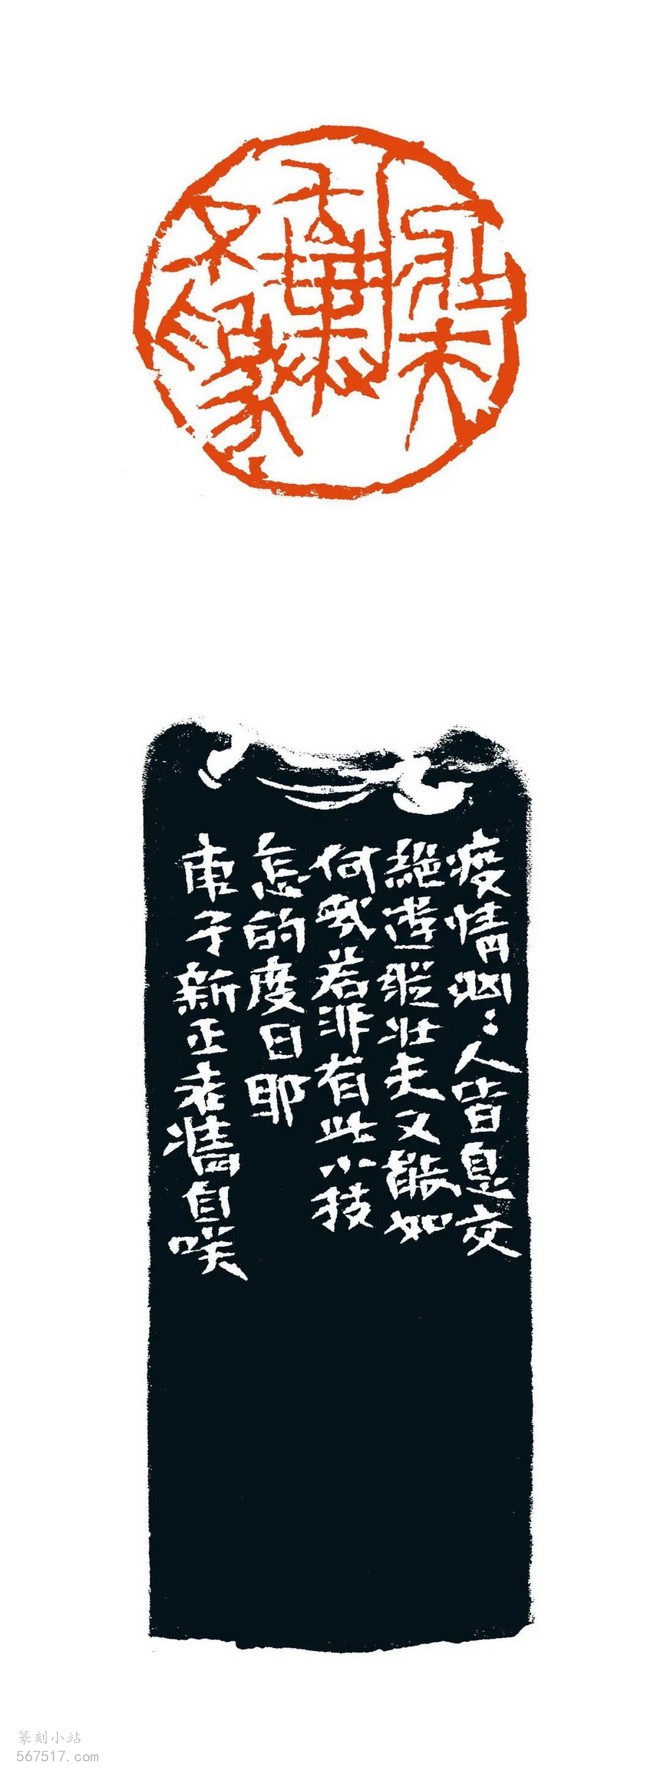 疫情凶〻人皆息交
絕遊縱壯夫又能如
何哉若非有此小技
怎的度日耶
庚子新正老牆自咲
篆刻小站
567517.com